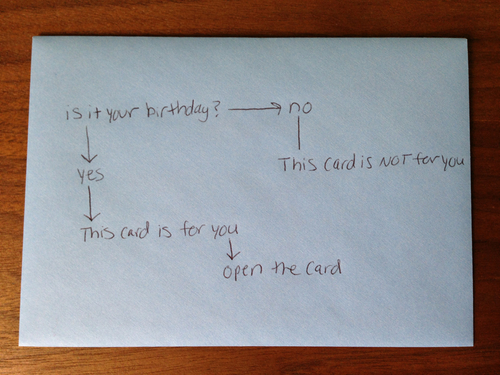 is it your birthday? no
This card is NOT for you
yes
This card is for you
open the card